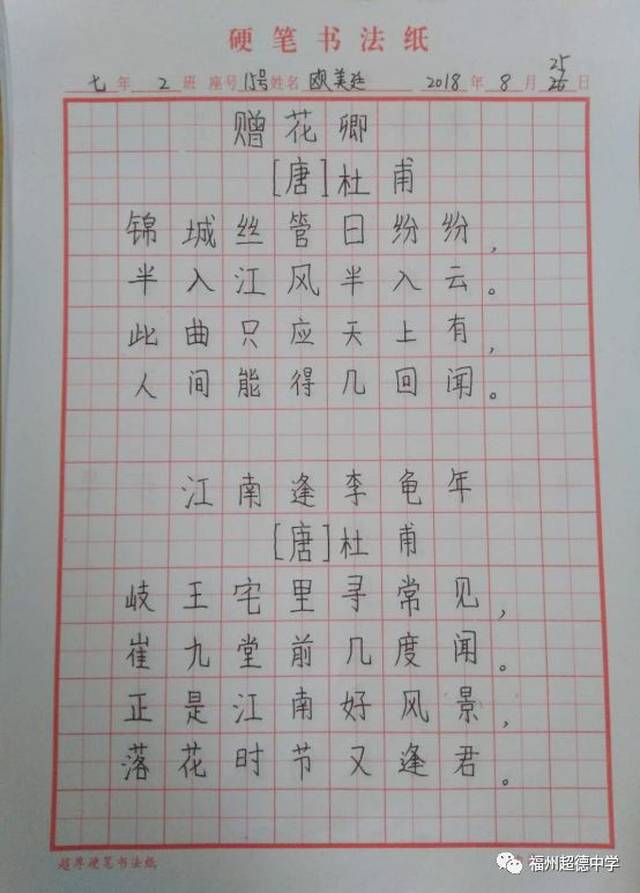 硬笔书法纸
25
七年2班 座号15号姓名欧美廷 2018年8月26日
赠花卿
[唐]杜甫
锦城丝管日纷纷，
半入江风半入云。
此曲只应天上有，
人间能得几回闻。
江南逢李龟年
[唐]杜甫
岐王宅里寻常见，
崔九堂前几度闻。
正是江南好风景，
落花时节又逢君。
超界硬笔书法纸
福州超德中学